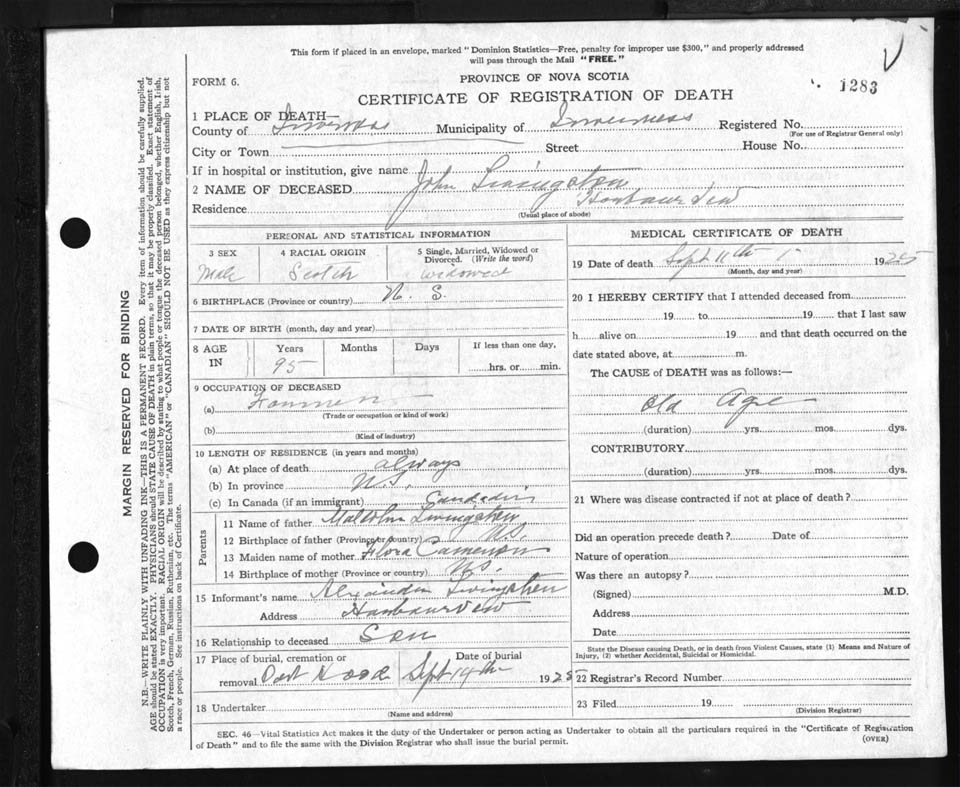 This form if placed in an envelope, marked "Dominion Statistics—Free, penalty for improper use $300," and properly addressed
will pass through the Mail "FREE."
FORM 6.
PROVINCE OF NOVA SCOTIA
1283
CERTIFICATE OF REGISTRATION OF DEATH
1 PLACE OF DEATH—
County of Inverness Municipality of Inverness Registered No.
(For use of Registrar General only)
City or Town Street House No.
If in hospital or institution, give name
2 NAME OF DECEASED John Livingston
Residence Harbour View
(Usual place of abode)
PERSONAL AND STATISTICAL INFORMATION
3 SEX 4 RACIAL ORIGIN 5 Single, Married, Widowed or
Divorced. (Write the word)
Male Scotch widowed
6 BIRTHPLACE (Province or country) N. S.
7 DATE OF BIRTH (month, day and year)
8 AGE IN Years Months Days If less than one day,
95 hrs. or min.
9 OCCUPATION OF DECEASED
(a) Farmer
(Trade or occupation or kind of work)
(b)
(Kind of industry)
10 LENGTH OF RESIDENCE (in years and months)
(a) At place of death always
(b) In province N.S.
(c) In Canada (if an immigrant)
Parents
11 Name of father Malcolm Livingston
12 Birthplace of father (Province or country) N.S.
13 Maiden name of mother Flora Cameron
14 Birthplace of mother (Province or country) N.S.
15 Informant's name Alexander Livingston
Address Harbour View
16 Relationship to deceased Son
17 Place of burial, cremation or Date of burial
removal Port Hood Sept 14th 1925
18 Undertaker
(Name and address)
MEDICAL CERTIFICATE OF DEATH
19 Date of death Sept 11th 1925
(Month, day and year)
20 I HEREBY CERTIFY that I attended deceased from
19 to 19 that I last saw
h alive on 19 and that death occurred on the
date stated above, at m.
The CAUSE of DEATH was as follows:—
Old Age
(duration) yrs. mos. dys.
CONTRIBUTORY
(duration) yrs. mos. dys.
21 Where was disease contracted if not at place of death?
Did an operation precede death? Date of
Nature of operation
Was there an autopsy?
(Signed) M.D.
Address
Date
State the Disease causing Death, or in death from Violent Causes, state (1) Means and Nature of
Injury, (2) whether Accidental, Suicidal or Homicidal.
22 Registrar's Record Number
23 Filed 19
(Division Registrar)
SEC. 46—Vital Statistics Act makes it the duty of the Undertaker or person acting as Undertaker to obtain all the particulars required in the "Certificate of Registration
of Death" and to file the same with the Division Registrar who shall issue the burial permit.
(OVER)
MARGIN RESERVED FOR BINDING
N.B.—WRITE PLAINLY WITH UNFADING INK—THIS IS A PERMANENT RECORD. Every item of information should be carefully supplied.
AGE should be stated EXACTLY. PHYSICIANS should STATE CAUSE OF DEATH in plain terms, so that it may be properly classified. Exact statement of
OCCUPATION is very important. RACIAL ORIGIN will be described by stating to what people or tongue the deceased person belonged, whether English, Irish,
Scotch, French, German, Russian, Ruthenian, etc. The terms "AMERICAN" or "CANADIAN" SHOULD NOT BE USED as they express citizenship but not
a race or people. See instructions on back of Certificate.